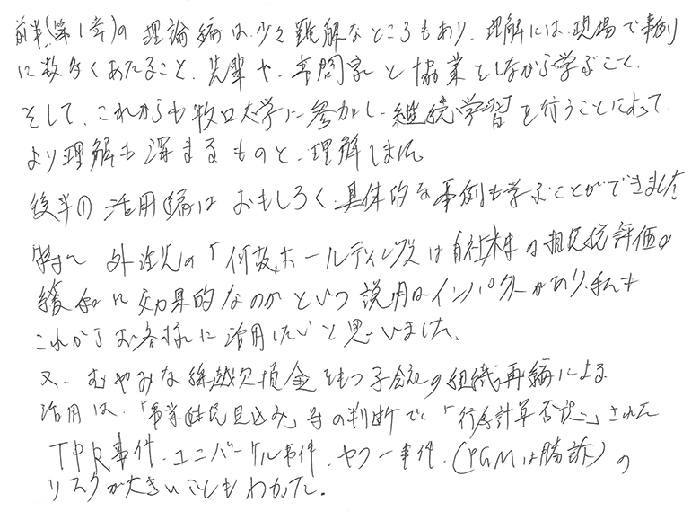 前半(第1章)の理論編は、少々難解なところもあり、理解には、現場で事例
に数多くあたること、先輩や、専門家と協業としながら学ぶこと、
そして、これからも牧口大学に参加し、継続学習を行うことによって
より理解も深まるものと、理解しました。
後半の活用編はおもしろく、具体的な事例も学ぶことができました
特に、外注先の「何故、ホールディングスは自社株の相続税評価の
緩和に効果的なのかという説明はインパクトがあり、私も
これからお客様に活用したいと思いました。
又、むやみな繰越欠損金をもつ子会社の組織再編による
活用は、「事業継続見込み」等の判断で「行為計算否認」された
TPR事件、ユニバーサル事件、ヤフー事件、(PGMは勝訴)の
リスクが大きいこともわかった。